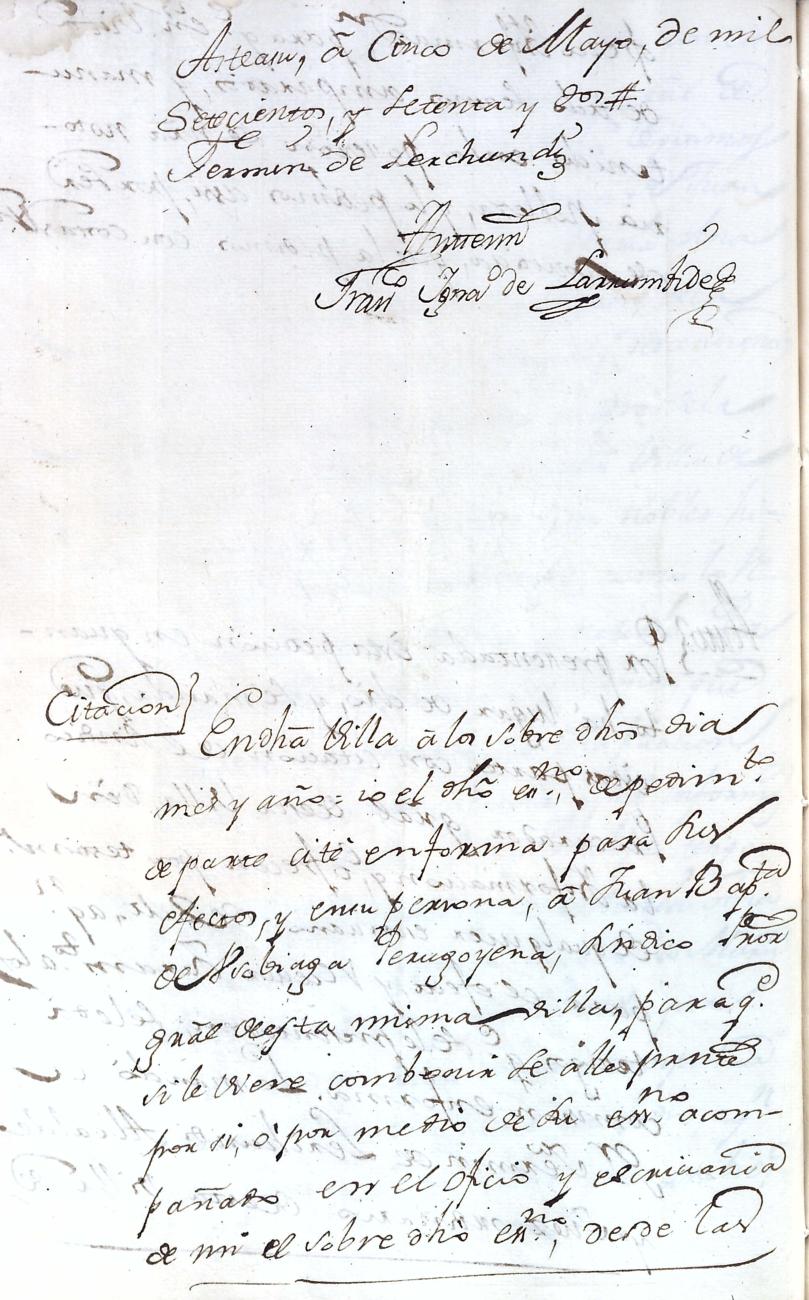 Asteasu, â Cinco de Mayo, de mil
Setecientos, y setenta y dos #
Fermin de Lerchundi
Antemi
Franco Ignao de Larrumbide
Citacion}
En dha Villa â los sobre dhos dia
mes y año = io el dho essno, de pedimto
de parte cité en forma para sus
efectos, y en su persona, â Juan Bapta
de Usobiaga Yerugoyena, sindico Prôr
gnâl desta misma villa, para qe
si le viere combenir se alle prnte
por si, ô por medio de su essno acom-
pañado en el oficio y escrivania
de mi el sobre dho essno, desde las